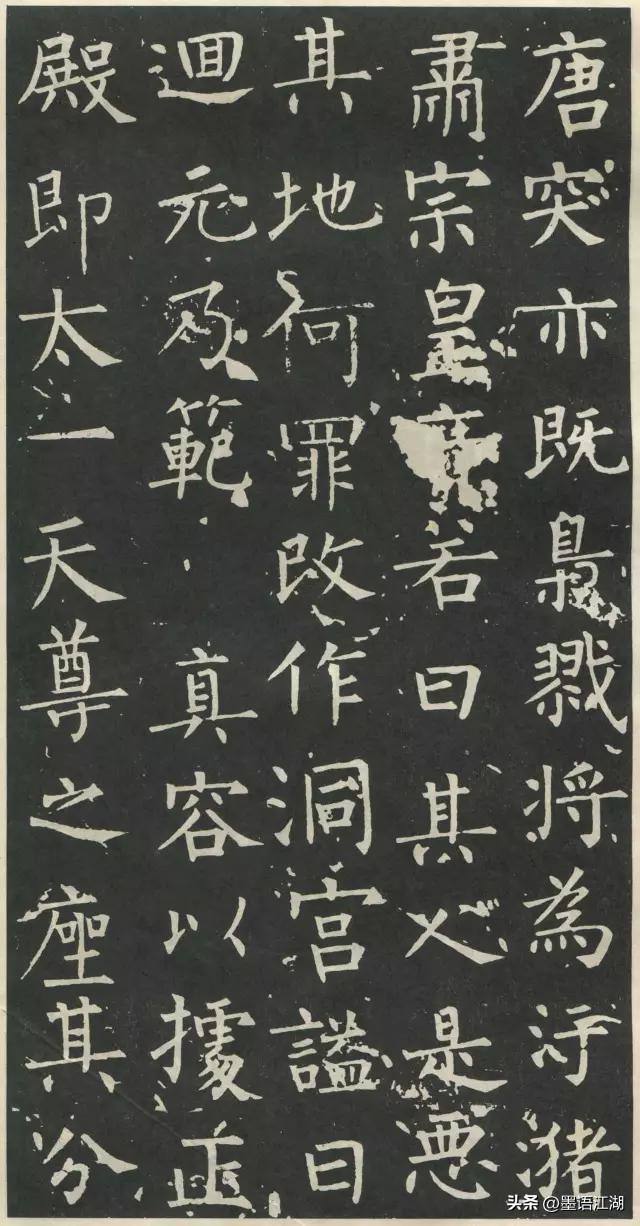 唐突亦既梟戮将為汙潴
肅宗皇帝若曰其人是惡
其地何罪改作洞宫謚曰
迴元乃範 真容以據正
殿即太一天尊之座其分
头条 @墨语江湖